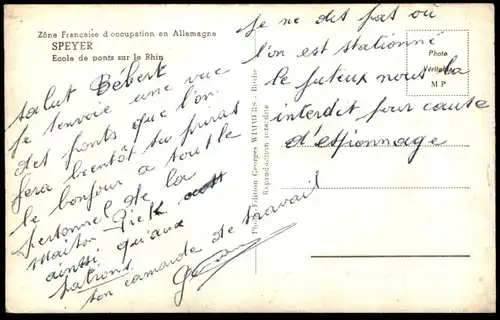 Zône Française d'occupation en Allemagne
SPEYER
Ecole de ponts sur le Rhin
salut Bébert
je t'envoie une vue
des ponts que l'on
fera bientôt tu diras
le bonjour a tout le
personnel de la
maison
ainsi qu'aux
patrons
ton camarde de travail
je ne dis pas où
l'on est stationné
le juteux nous l'a
interdit pour cause
d'espionnage
Photo
Véritable
M P
Photo-Edition Georges WIMMERS -
Reproduction interdite